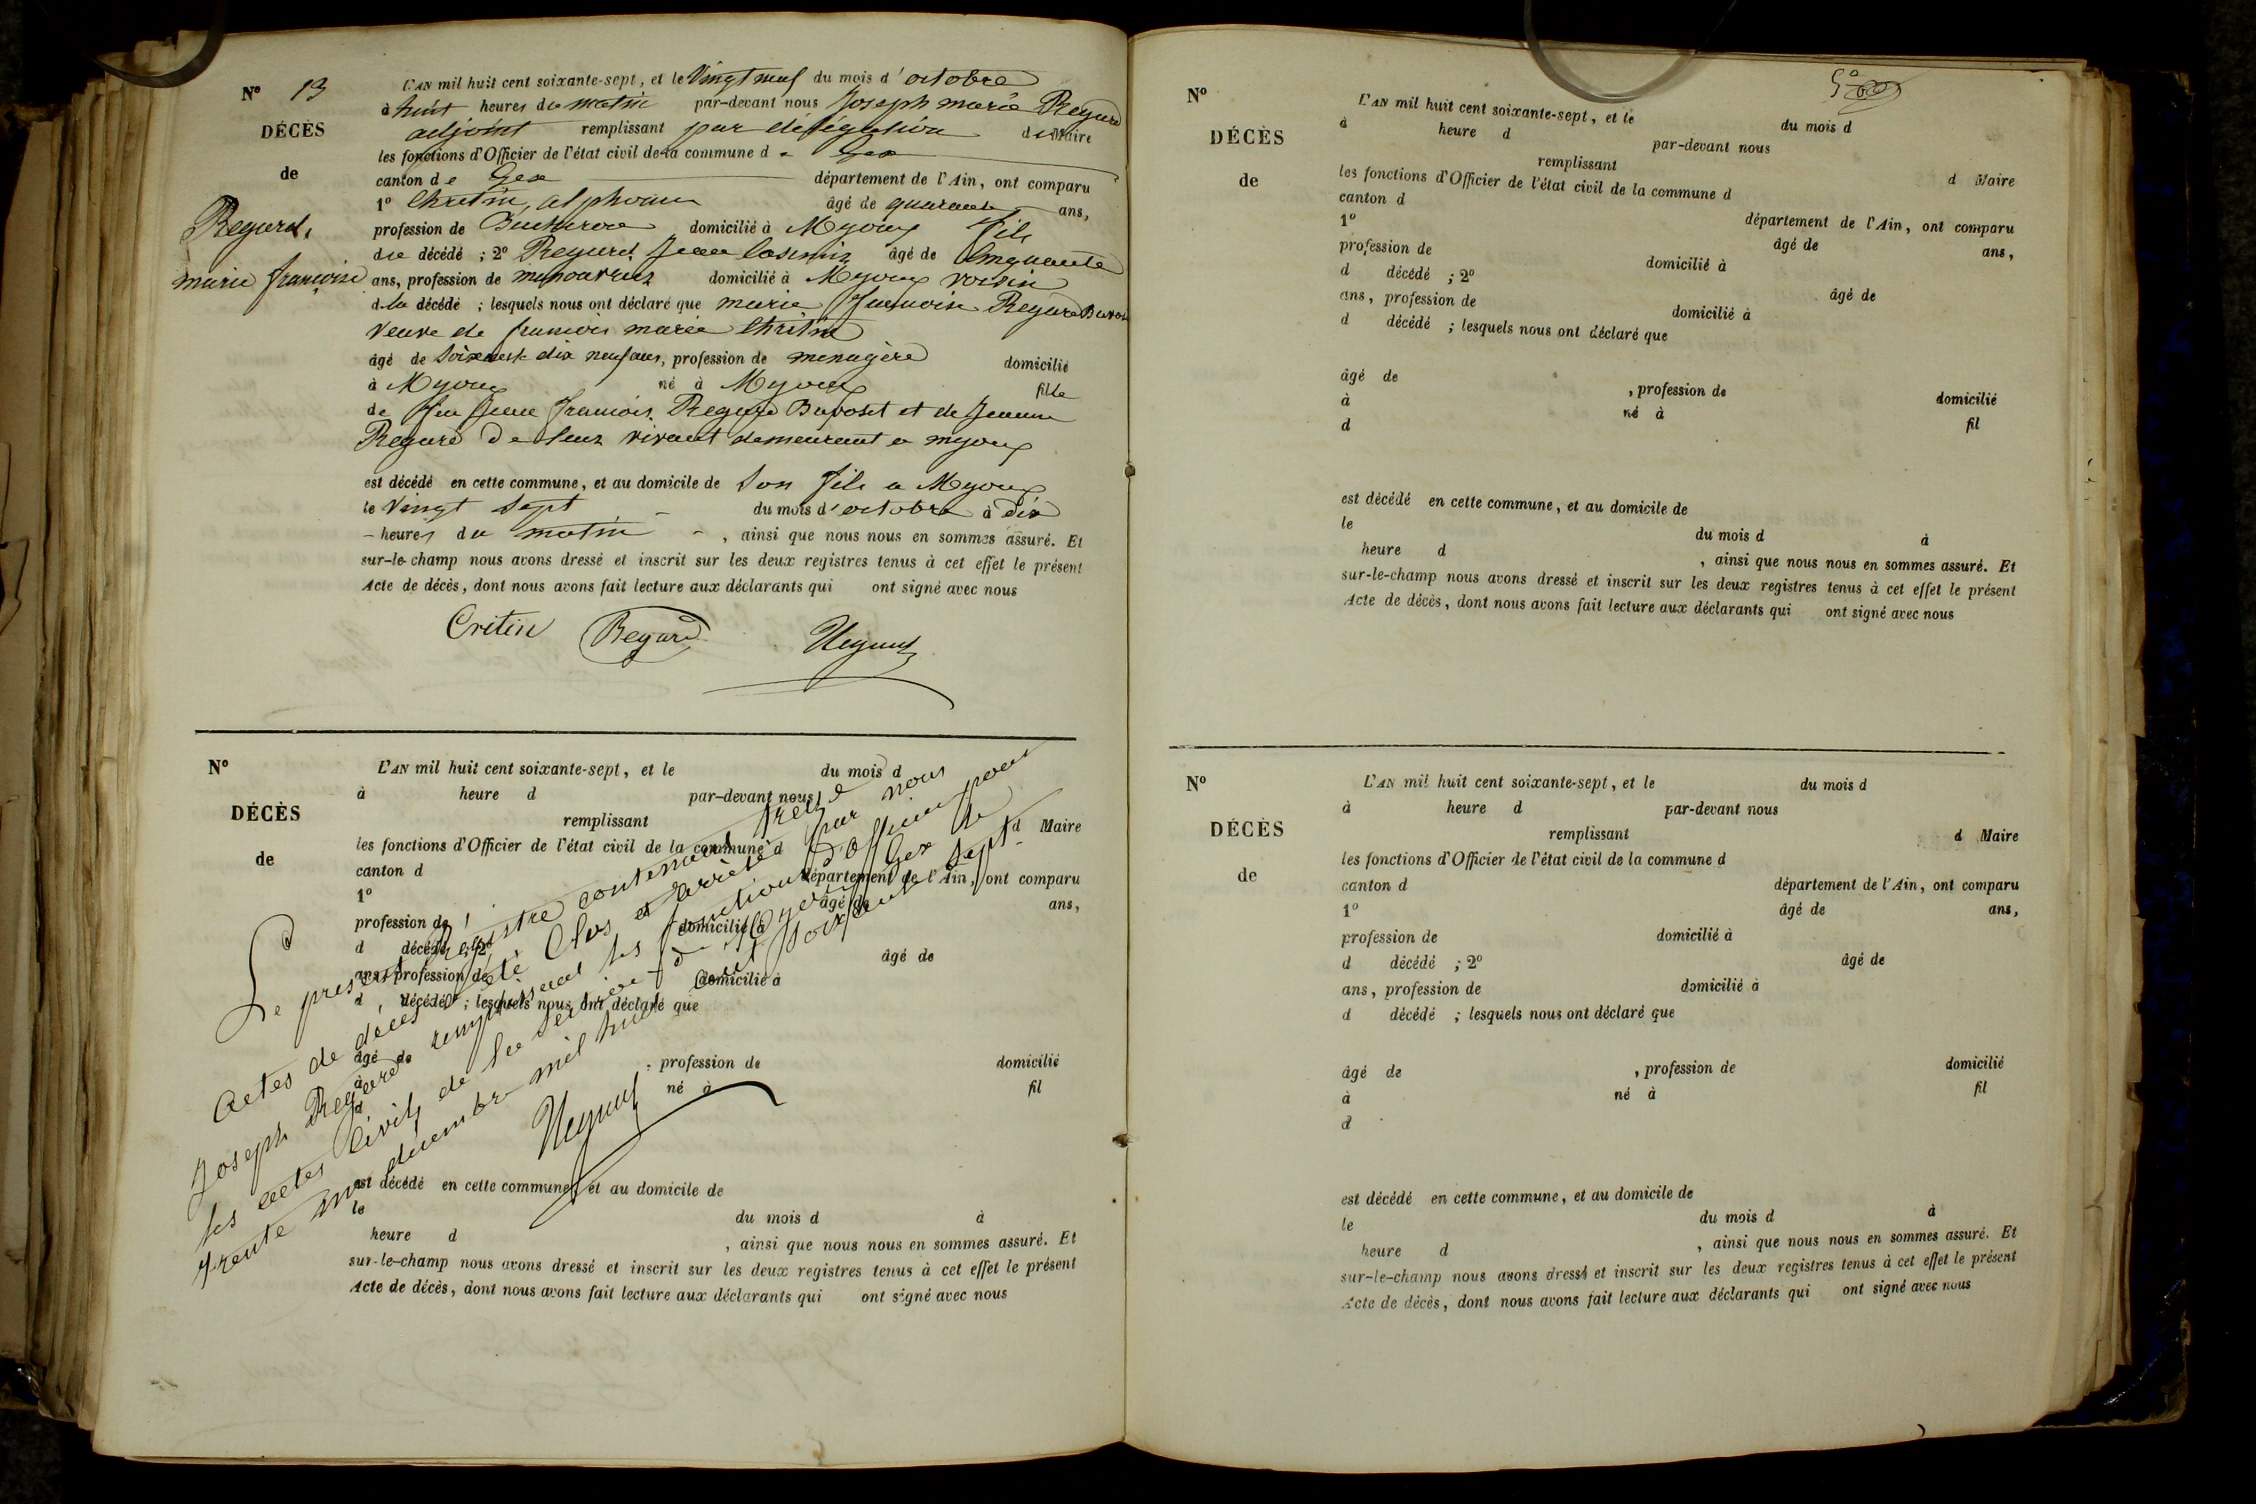 Nº 13
DÉCÈS
de
Regard,
marie françoise
L'AN mil huit cent soixante-sept, et le Vingt neuf du mois d'octobre
à huit heures du matin par-devant nous Joseph marie Regard
adjoint remplissant par délégation du Maire
les fonctions d'Officier de l'état civil de la commune de Gex
canton de Gex département de l'Ain, ont comparu
1º Chritin, alphonse âgé de quarante ans,
profession de domicilié à Myoux fils
du décédé ; 2º Regard Jean Casimir âgé de Cinquante
ans, profession de manouvrier domicilié à Myoux voisin
d la décédé ; lesquels nous ont déclaré que marie françoise Regard
veuve de françois marie Chritin
âgé de soixante dix neuf ans, profession de menagère domicilié
à Myoux né à Myoux fille
de feu Jean françois Regard Buvoset et de Jeanne
Regard De leur vivant demeurant a myoux
est décédé en cette commune, et au domicile de son fils a Myoux
le Vingt Sept du mois d'octobre à dix
heures du matin, ainsi que nous nous en sommes assuré. Et
sur-le-champ nous avons dressé et inscrit sur les deux registres tenus à cet effet le présent
Acte de décès, dont nous avons fait lecture aux déclarants qui ont signé avec nous
Critin Regard Regard
Nº
DÉCÈS
de
L'AN mil huit cent soixante-sept, et le du mois d
à heure d par-devant nous
remplissant d Maire
les fonctions d'Officier de l'état civil de la commune d
canton d département de l'Ain, ont comparu
1º âgé de ans,
profession de domicilié à
d décédé ; 2º âgé de
ans, profession de domicilié à
d décédé ; lesquels nous ont déclaré que
âgé de , profession de domicilié
à né à fil
d
est décédé en cette commune, et au domicile de
le du mois d à
heure d , ainsi que nous nous en sommes assuré. Et
sur-le-champ nous avons dressé et inscrit sur les deux registres tenus à cet effet le présent
Acte de décès, dont nous avons fait lecture aux déclarants qui ont signé avec nous
Le présent Registre contenant treize
actes de décès a été Clos et arrêté par nous
Joseph Regard remplissant les fonctions d'officier pour
les actes Civils de la Section de Myoux Gex le
trente un décembre mil huit Cent Soixante Sept
Regard
Nº
DÉCÈS
de
L'AN mil huit cent soixante-sept, et le du mois d
à heure d par-devant nous
remplissant d Maire
les fonctions d'Officier de l'état civil de la commune d
canton d département de l'Ain, ont comparu
1º âgé de ans,
profession de domicilié à
d décédé ; 2º âgé de
ans, profession de domicilié à
d décédé ; lesquels nous ont déclaré que
âgé de , profession de domicilié
à né à fil
d
est décédé en cette commune, et au domicile de
le du mois d à
heure d , ainsi que nous nous en sommes assuré. Et
sur-le-champ nous avons dressé et inscrit sur les deux registres tenus à cet effet le présent
Acte de décès, dont nous avons fait lecture aux déclarants qui ont signé avec nous
Nº
DÉCÈS
de
L'AN mil huit cent soixante-sept, et le du mois d
à heure d par-devant nous
remplissant d Maire
les fonctions d'Officier de l'état civil de la commune d
canton d département de l'Ain, ont comparu
1º âgé de ans,
profession de domicilié à
d décédé ; 2º âgé de
ans, profession de domicilié à
d décédé ; lesquels nous ont déclaré que
âgé de , profession de domicilié
à né à fil
d
est décédé en cette commune, et au domicile de
le du mois d à
heure d , ainsi que nous nous en sommes assuré. Et
sur-le-champ nous avons dressé et inscrit sur les deux registres tenus à cet effet le présent
Acte de décès, dont nous avons fait lecture aux déclarants qui ont signé avec nous